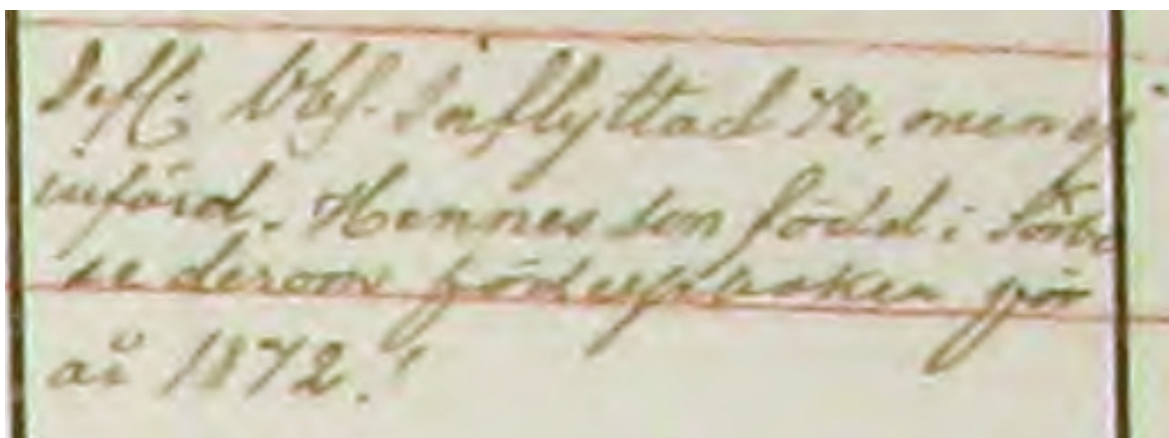 Inflyttad 72, men ej
införd. Hennes son född i
se derom födelseboken för
år 1872.